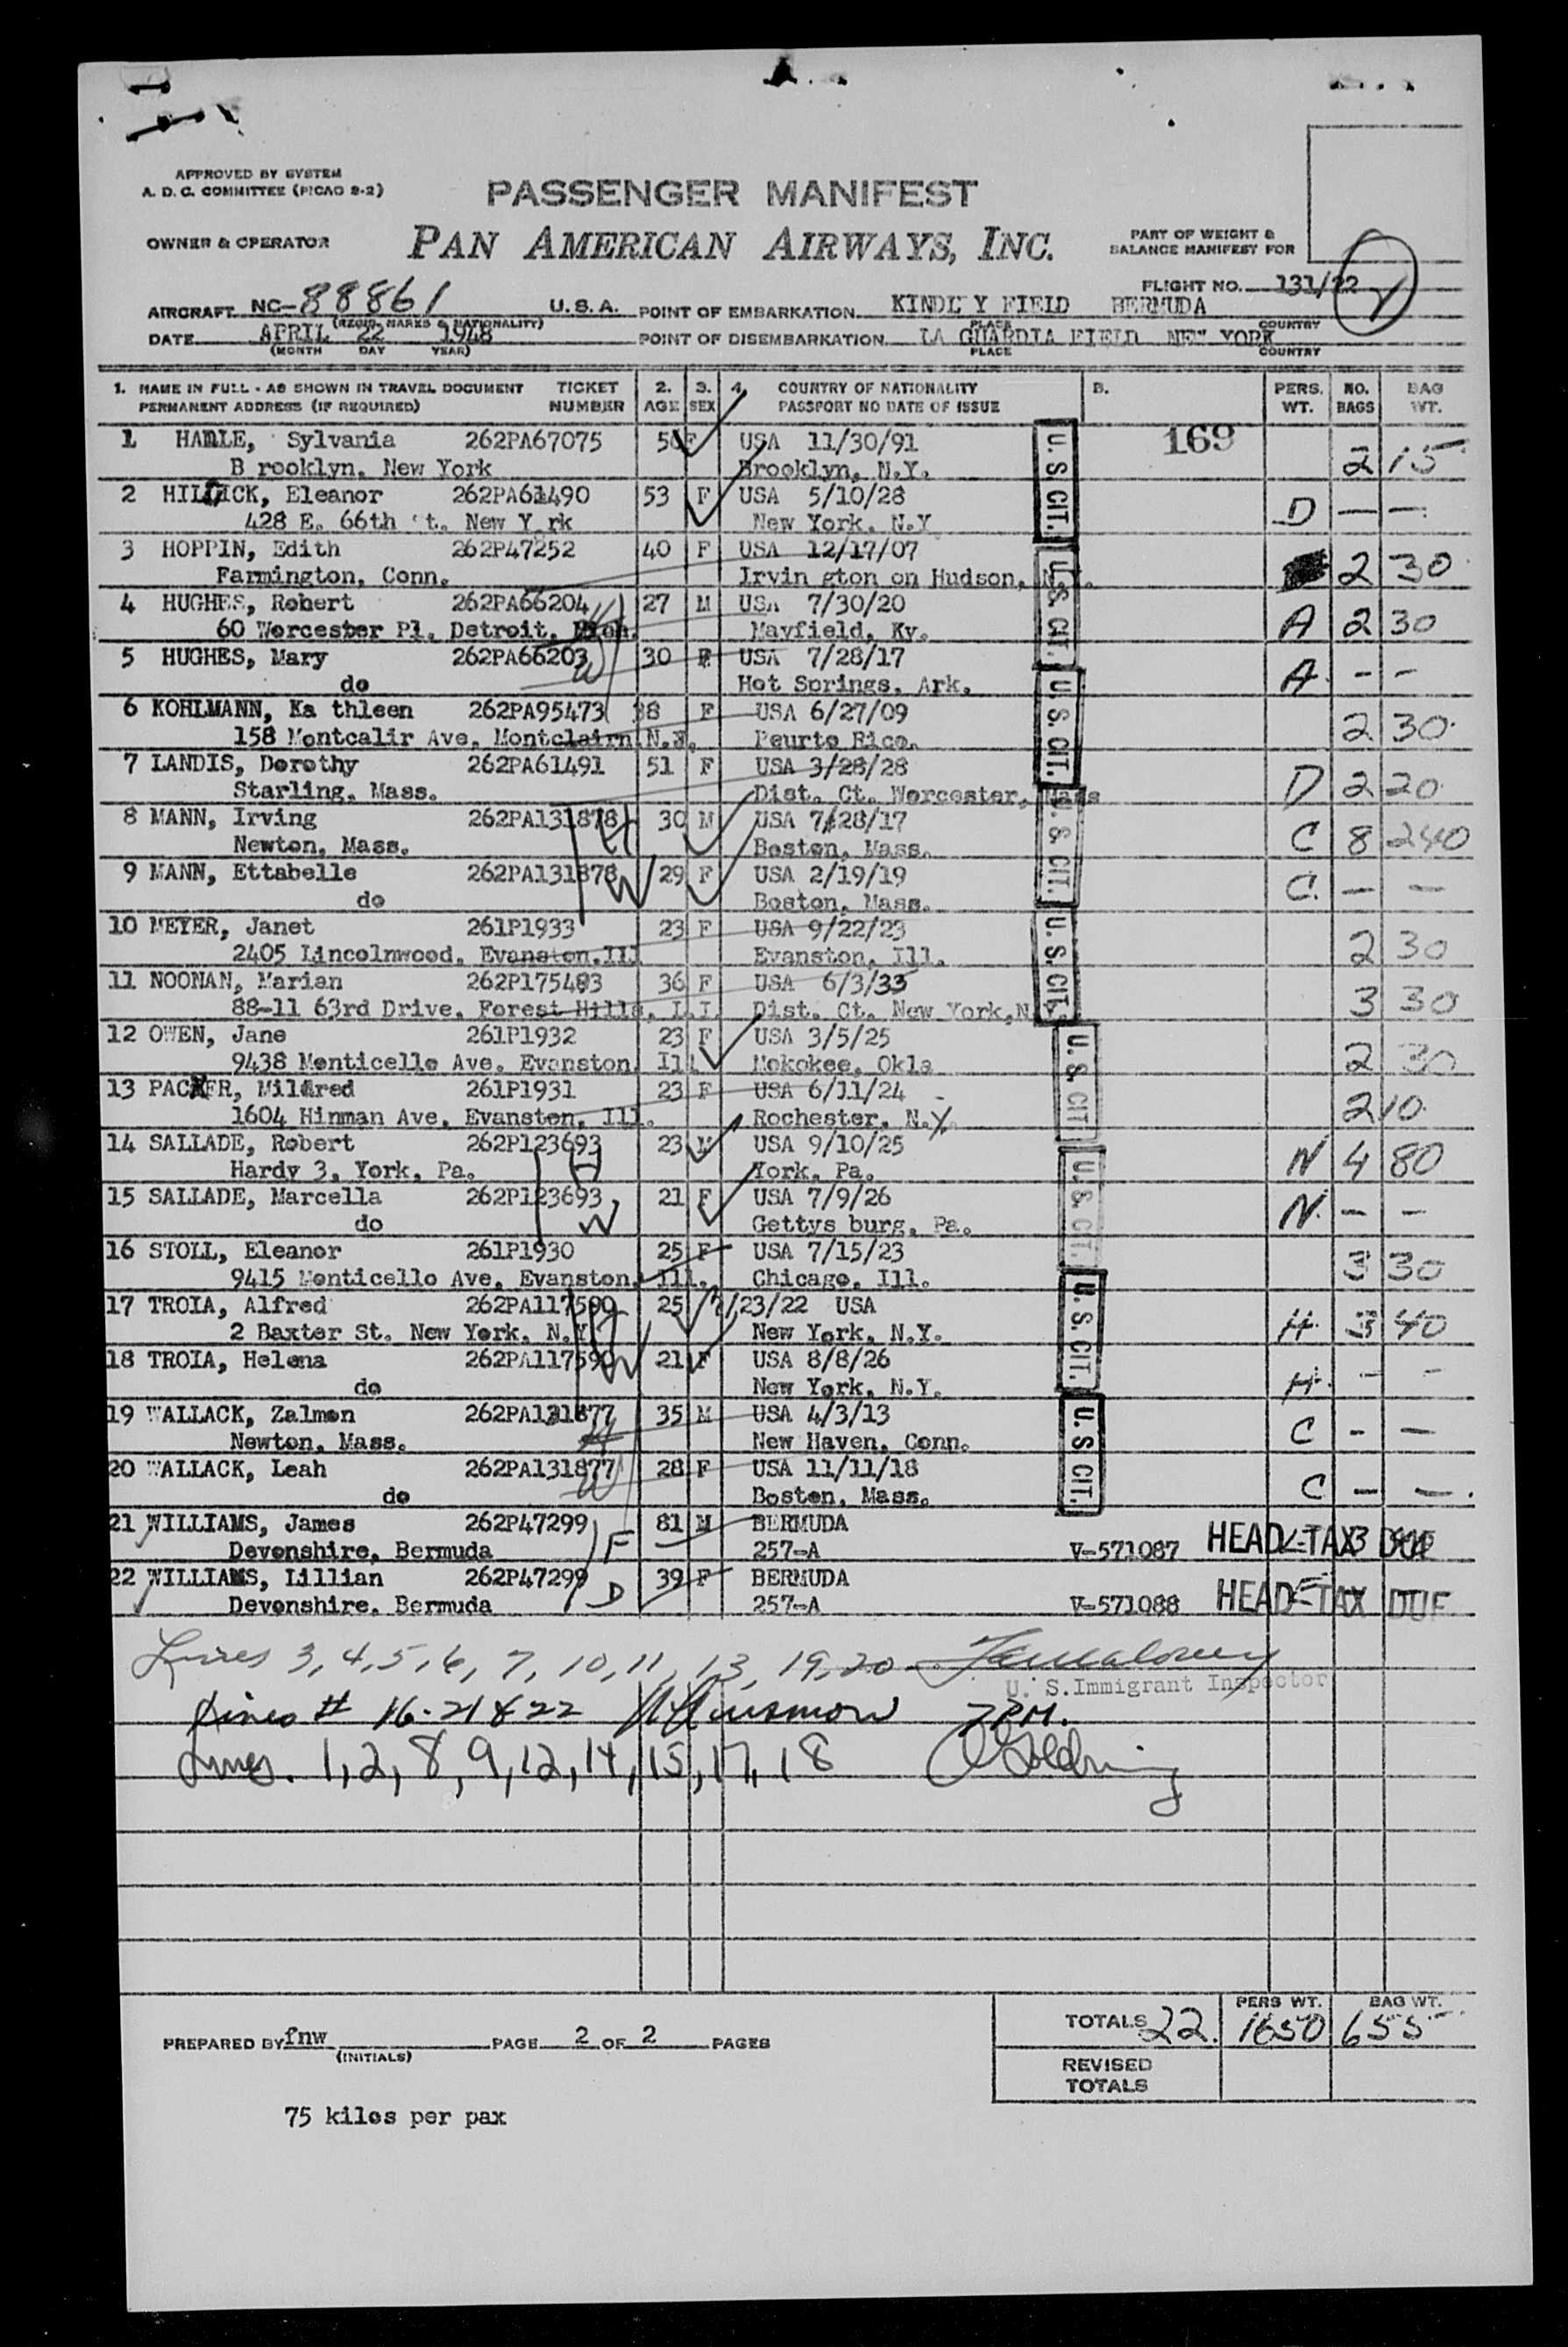 APPROVED BY SYSTEM
A. D. C. COMMITTEE (PICAO 2-2)
PASSENGER MANIFEST
OWNER & OPERATOR
PAN AMERICAN AIRWAYS, INC.
PART OF WEIGHT &
BALANCE MANIFEST FOR
FLIGHT NO. 131/22
2
AIRCRAFT NC-88861 U.S.A. POINT OF EMBARKATION KINDLEY FIELD BERMUDA
(REGIS. MARKS & NATIONALITY) PLACE COUNTRY
DATE APRIL 22 1948 POINT OF DISEMBARKATION LA GUARDIA FIELD NEW YORK
(MONTH DAY YEAR) PLACE COUNTRY
1. NAME IN FULL - AS SHOWN IN TRAVEL DOCUMENT TICKET 2. 3. 4. COUNTRY OF NATIONALITY B. PERS. NO. BAG
PERMANENT ADDRESS (IF REQUIRED) NUMBER AGE SEX PASSPORT NO DATE OF ISSUE WT. BAGS WT.
1 Sylvania 262PA67075 F USA 11/30/91 U. S CIT. 169 2 15
B rooklyn, New York Brooklyn, N.Y.
2 Eleanor 262PA61490 53 F USA 5/10/28 D — —
428 E. 66th t. New Y rk New York, N.Y
3 HOPPIN, Edith 262P47252 40 F USA 12/17/07 U.S. CIT. 2 30
Farmington, Conn. Irvin gton on Hudson,
4 HUGHES, Robert 262PA66204 27 M USA 7/30/20 A 2 30
60 Worcester Pl. Detroit, Mayfield, Ky.
5 HUGHES, Mary 262PA66203 W 30 F USA 7/28/17 A - -
do Hot Springs, Ark.
6 KOHLMANN, Ka thleen 262PA95473 38 F USA 6/27/09 U.S. CIT. 2 30
158 Montcalir Ave, Montclairn N.J. Peurto Rico.
7 LANDIS, Dorothy 262PA61491 51 F USA 3/28/28 D 2 20
Starling, Mass. Dist. Ct. Worcester, Mass
8 MANN, Irving 262PA131878 H 30 M USA 7/28/17 U.S. CIT. C 8 240
Newton, Mass. Boston, Mass.
9 MANN, Ettabelle 262PA131878 W 29 F USA 2/19/19 C. — —
do Boston, Mass.
10 MEYER, Janet 261P1933 23 F USA 9/22/23 U.S. CIT. 2 30
2405 Lincolnwood, Evanston, Ill Evanston, Ill.
11 NOONAN, Marian 262P175483 36 F USA 6/3/33 3 30
88-11 63rd Drive, Forest Hills, L.I. Dist. Ct. New York,N.Y
12 OWEN, Jane 261P1932 23 F USA 3/5/25 U.S. CIT 2 30
9438 Monticello Ave, Evanston, Ill Mokokee, Okla
13 PACKER, Mildred 261P1931 23 F USA 6/11/24 2 10
1604 Hinman Ave, Evanston, Ill. Rochester, N.Y.
14 SALLADE, Robert 262P123693 H 23 M USA 9/10/25 U.S. CIT. N 4 80
Hardy 3, York, Pa. York, Pa.
15 SALLADE, Marcella 262P123693 W 21 F USA 7/9/26 N. — —
do Gettys burg, Pa.
16 STOLL, Eleanor 261P1930 25 F USA 7/15/23 3 30
9415 Monticello Ave, Evanston, Ill. Chicago, Ill.
17 TROIA, Alfred 262PA117590 H 25 /23/22 USA U.S. CIT. H 3 40
2 Baxter St. New York, N.Y New York, N.Y.
18 TROIA, Helena 262PA117590 W 21 F USA 8/8/26 H. - -
do New York, N.Y.
19 WALLACK, Zalmon 262PA131877 H 35 M USA 4/3/13 U.S CIT. C - —
Newton, Mass. New Haven, Conn.
20 WALLACK, Leah 262PA131877 W 28 F USA 11/11/18 C — —
do Boston, Mass.
21 WILLIAMS, James 262P47299 F 81 M BERMUDA HEAD TAX DUE
Devonshire, Bermuda 257-A V-571087
22 WILLIAMS, Lillian 262P47299 D 39 F BERMUDA HEAD TAX DUE
Devonshire, Bermuda 257-A V-571088
Lines 3, 4, 5, 6, 7, 10, 11, 13, 19, 20
U. S. Immigrant Inspector
Lines # 16-21 & 22
Lines. 1, 2, 8, 9, 12, 14, 15, 17, 18
TOTALS 22. PERS WT. 1650 BAG WT. 655
PREPARED BY fnw PAGE 2 OF 2 PAGES
(INITIALS)
REVISED
TOTALS
75 kilos per pax